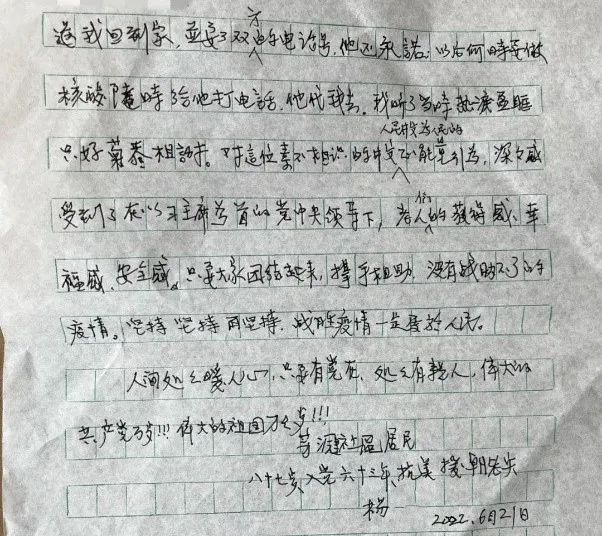 送我回到家,並要了双方的电话号,他还承諾:以后何時要做
核酸随時给他打电話,他代我去。我听了当時热泪盈眶
只好相謝。对這位素不相识的中,深々感
受到了在以习主席为首的党中央领导下,老人们的获得感、幸
福感、安全感。只要大家团结起来,攜手相助,没有战胜不了的
疫情。坚持 坚持 再坚持,战胜疫情一定属於人民。
人间处々暖人心,只要有党在,处々有親人,偉大的
共产党万岁!!!偉大的祖国万々岁!!!
社區居民
八十七岁、入党六十三年、抗美援朝老兵
杨
2022.6月21日